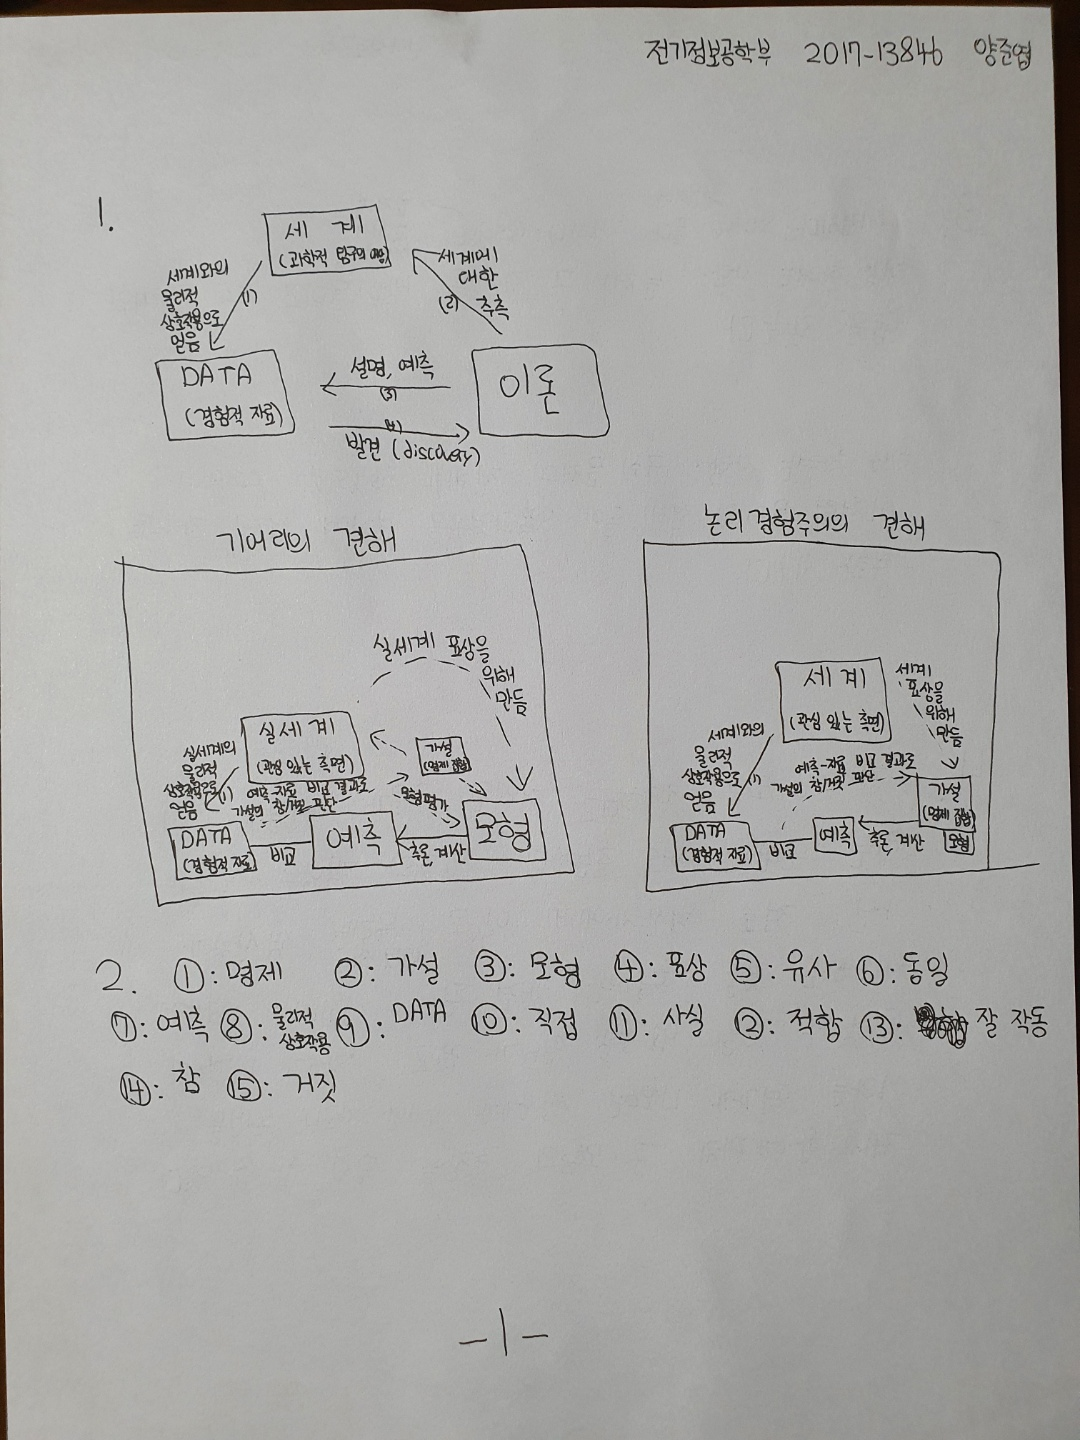 전기정보공학부 2017-13846 양준엽
1.
세 계
(과학적 탐구의 대상)
세계와의
물리적
상호작용으로
얻음
(1)
세계에
대한
추측
(2)
DATA
(경험적 자료)
설명, 예측
(3)
(4)
발견 (discovery)
이론
기어리의 견해
실세계 표상을
위해
만듦
실세계
(관심 있는 측면)
실세계의
물리적
상호작용으로
얻음
(1)
가설
(명제 집합)
예측-자료 비교 결과로
가설의 참/거짓 판단
모형평가
DATA
(경험적 자료)
비교
예측
추론, 계산
모형
논리 경험주의의 견해
세계
(관심 있는 측면)
세계
표상을
위해
만듦
세계와의
물리적
상호작용으로
얻음
(1)
예측-자료 비교 결과로
가설의 참/거짓 판단
가설
(명제 집합)
모형
DATA
(경험적 자료)
비교
예측
추론, 계산
2. ①: 명제 ②: 가설 ③: 모형 ④: 표상 ⑤: 유사 ⑥: 동일
⑦: 예측 ⑧: 물리적 상호작용 ⑨: DATA ⑩: 직접 ⑪: 사실 ⑫: 적합 ⑬: 잘 작동
⑭: 참 ⑮: 거짓
-1-